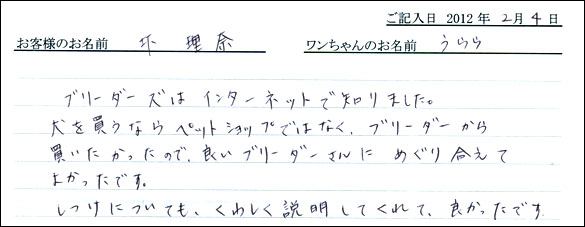 ご記入日 2012年 2月 4日
お客様のお名前 坏 理奈 ワンちゃんのお名前 うらら
ブリーダーズはインターネットで知りました。
犬を買うならペットショップではなく、ブリーダーから
買いたかったので、良いブリーダーさんに めぐり合えて
よかったです。
しつけについても、くわしく説明してくれて、良かったです